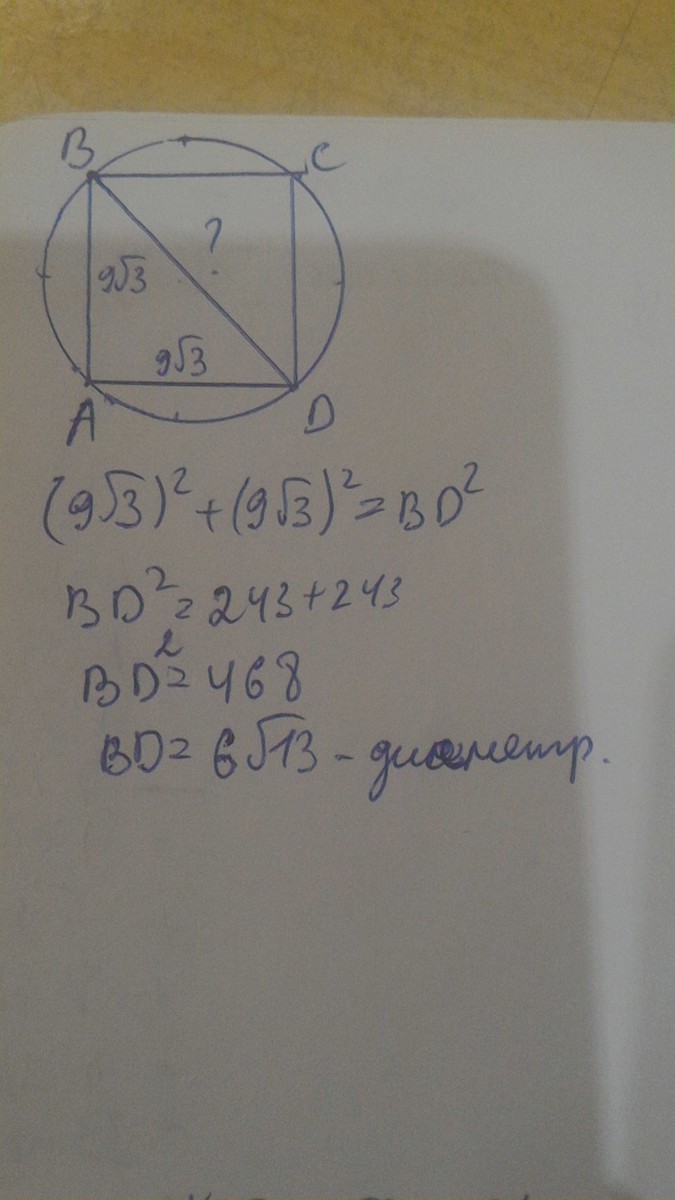 B C
?
9√3
9√3
A D
(9√3)² + (9√3)² = BD²
BD² = 243 + 243
BD² = 468
BD = 6√13 - диаметр.